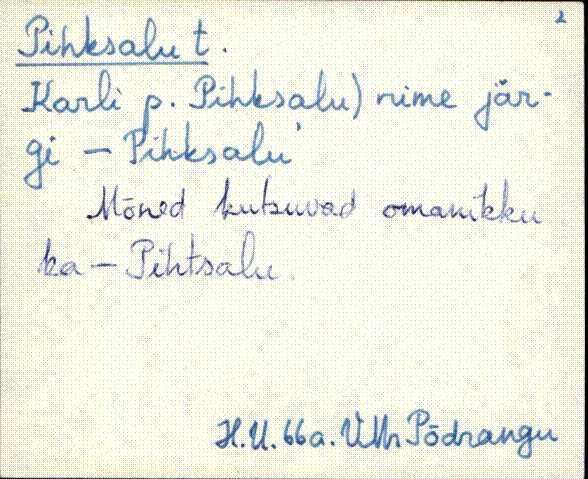 2
Pihksalu t.
Karli p. Pihksalu) nime jär-
gi – Pihksalu
Mõned kutsuvad omanikku
ka – Pihtsalu.
H.U. 66a. VMr Põdrangu